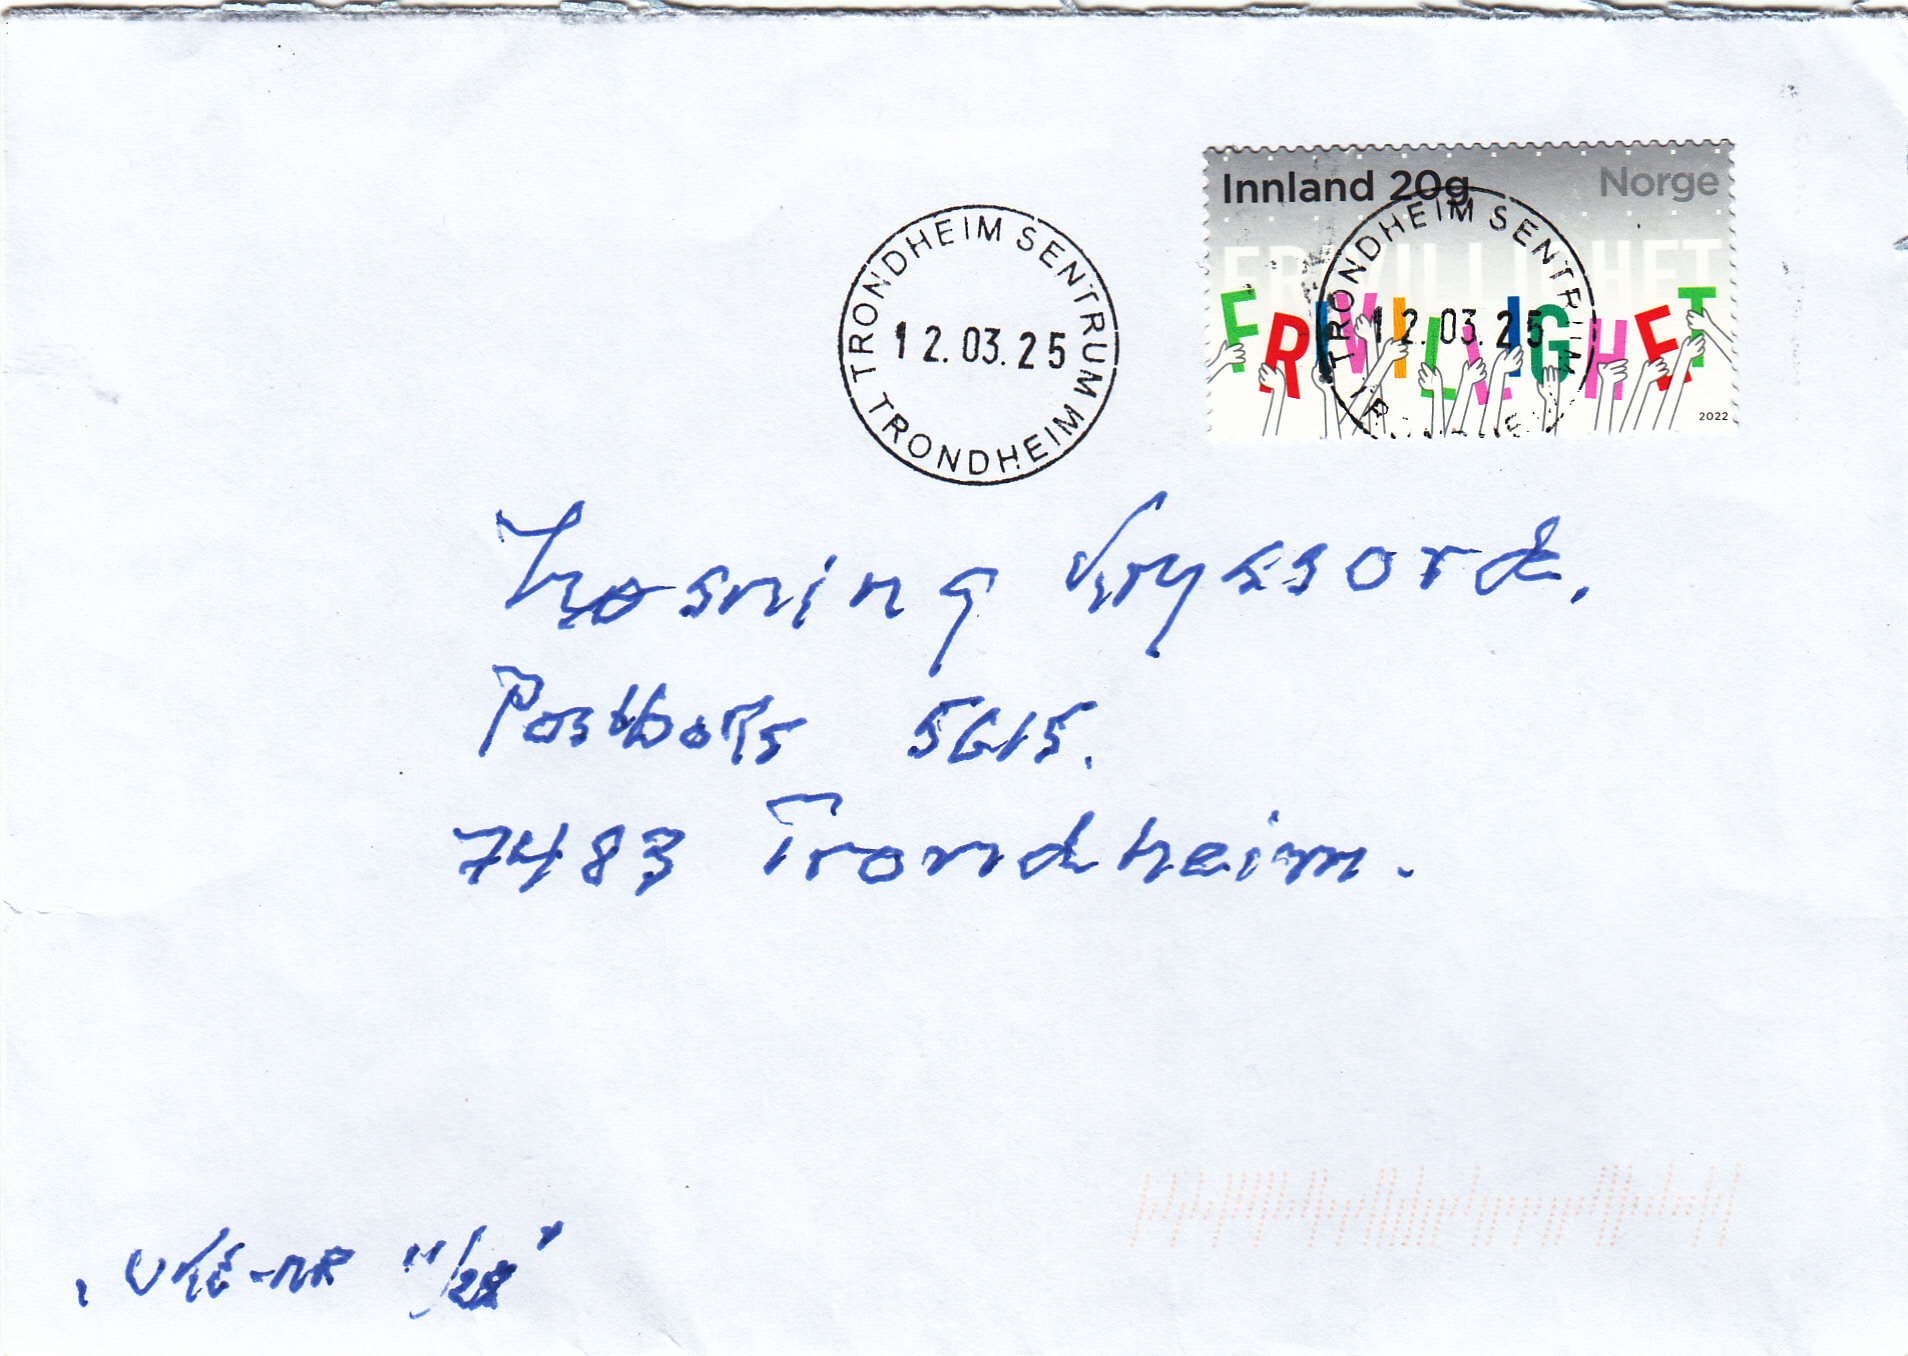 Innland 20g Norge
FRIVILLIGHET
FRIVILLIGHET
2022
TRONDHEIM SENTRUM
12.03.25
TRONDHEIM
TRONDHEIM SENTRUM
12.03.25
Løsning Kryssord.
Postboks 5615.
7483 Trondheim.
UKE-NR "11/